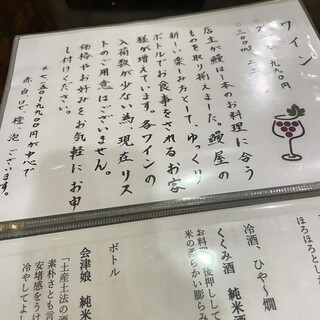 ワイン
店主が鰻は一本のお料理に合う
ものを取り揃えました。鰻屋の
新しい楽しみ方として、ゆっくり
ボトルでお食事をされるお客
様が増えています。各ワインの
入荷数が少ない為、現在リス
トのご用意はございません。
価格やお好みをお気軽にお申
し付けください。
赤白ロゼ、橙、泡ございます。
ほろほろとし
冷酒、ひや~燗
くくみ酒 純米酒
お料理を後押しして
米の柔らかい膨らみ
ボトル
会津娘 純米
「土産土法の酒
素朴さとも言
安堵感をうけ
冷やしてよし